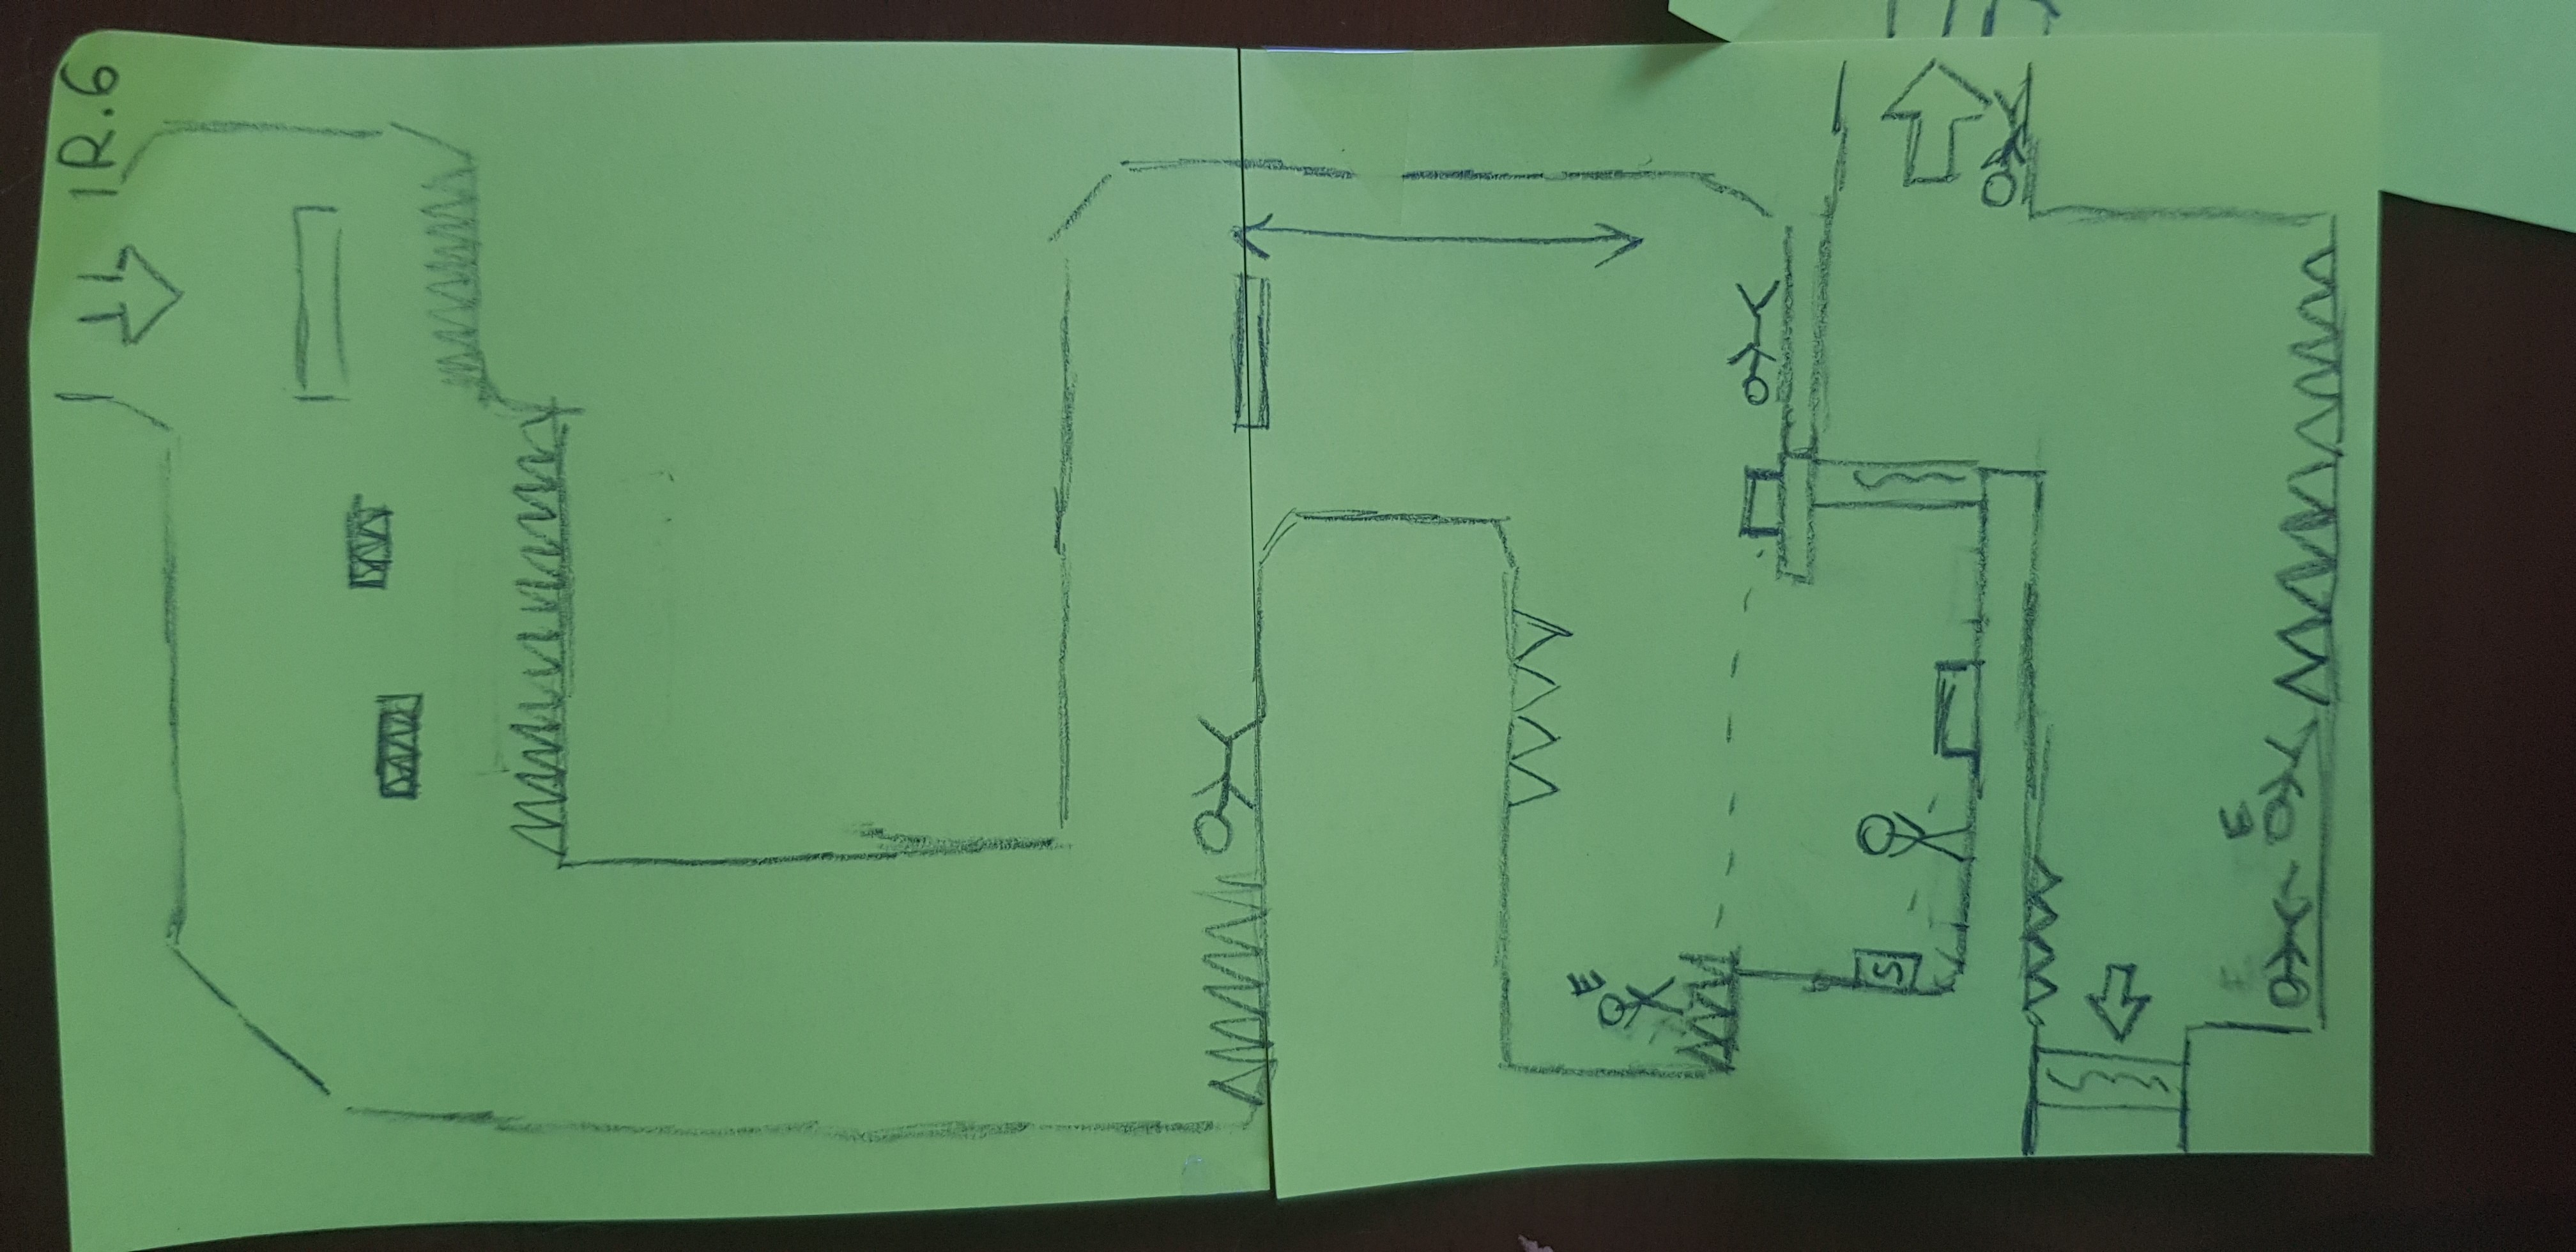 1R.6
E
S
E